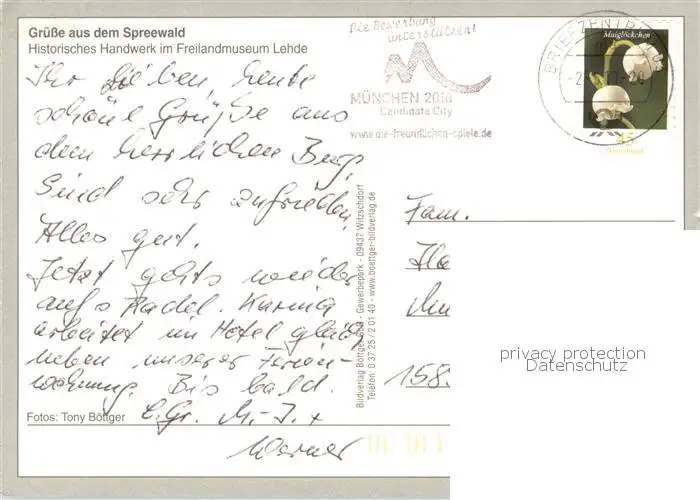 Grüße aus dem Spreewald
Historisches Handwerk im Freilandmuseum Lehde
Die Bewerbung
unterstützen!
MÜNCHEN 2018
Candidate City
www.die-freundlichen-spiele.de
BRIEFZENTRUM
Maiglöckchen
45
Deutschland
Ihr Lieben, heute
schöne Grüße aus
dem herrlichen Burg,
Sind sehr zufrieden,
Alles gut.
Jetzt gehts wieder
aufs Radel. Karina
arbeitet im Hotel gleich
neben unserer Ferien-
wohnung. Bis bald.
L. Gr. M.-J. +
Werner
Fotos: Tony Böttger
Bildverlag Böttger GbR - Gewerbepark - 09437 Witzschdorf
Telefon: 0 37 25 / 2 01 40 - www.boettger-bildverlag.de
Fam.
158
privacy protection
Datenschutz